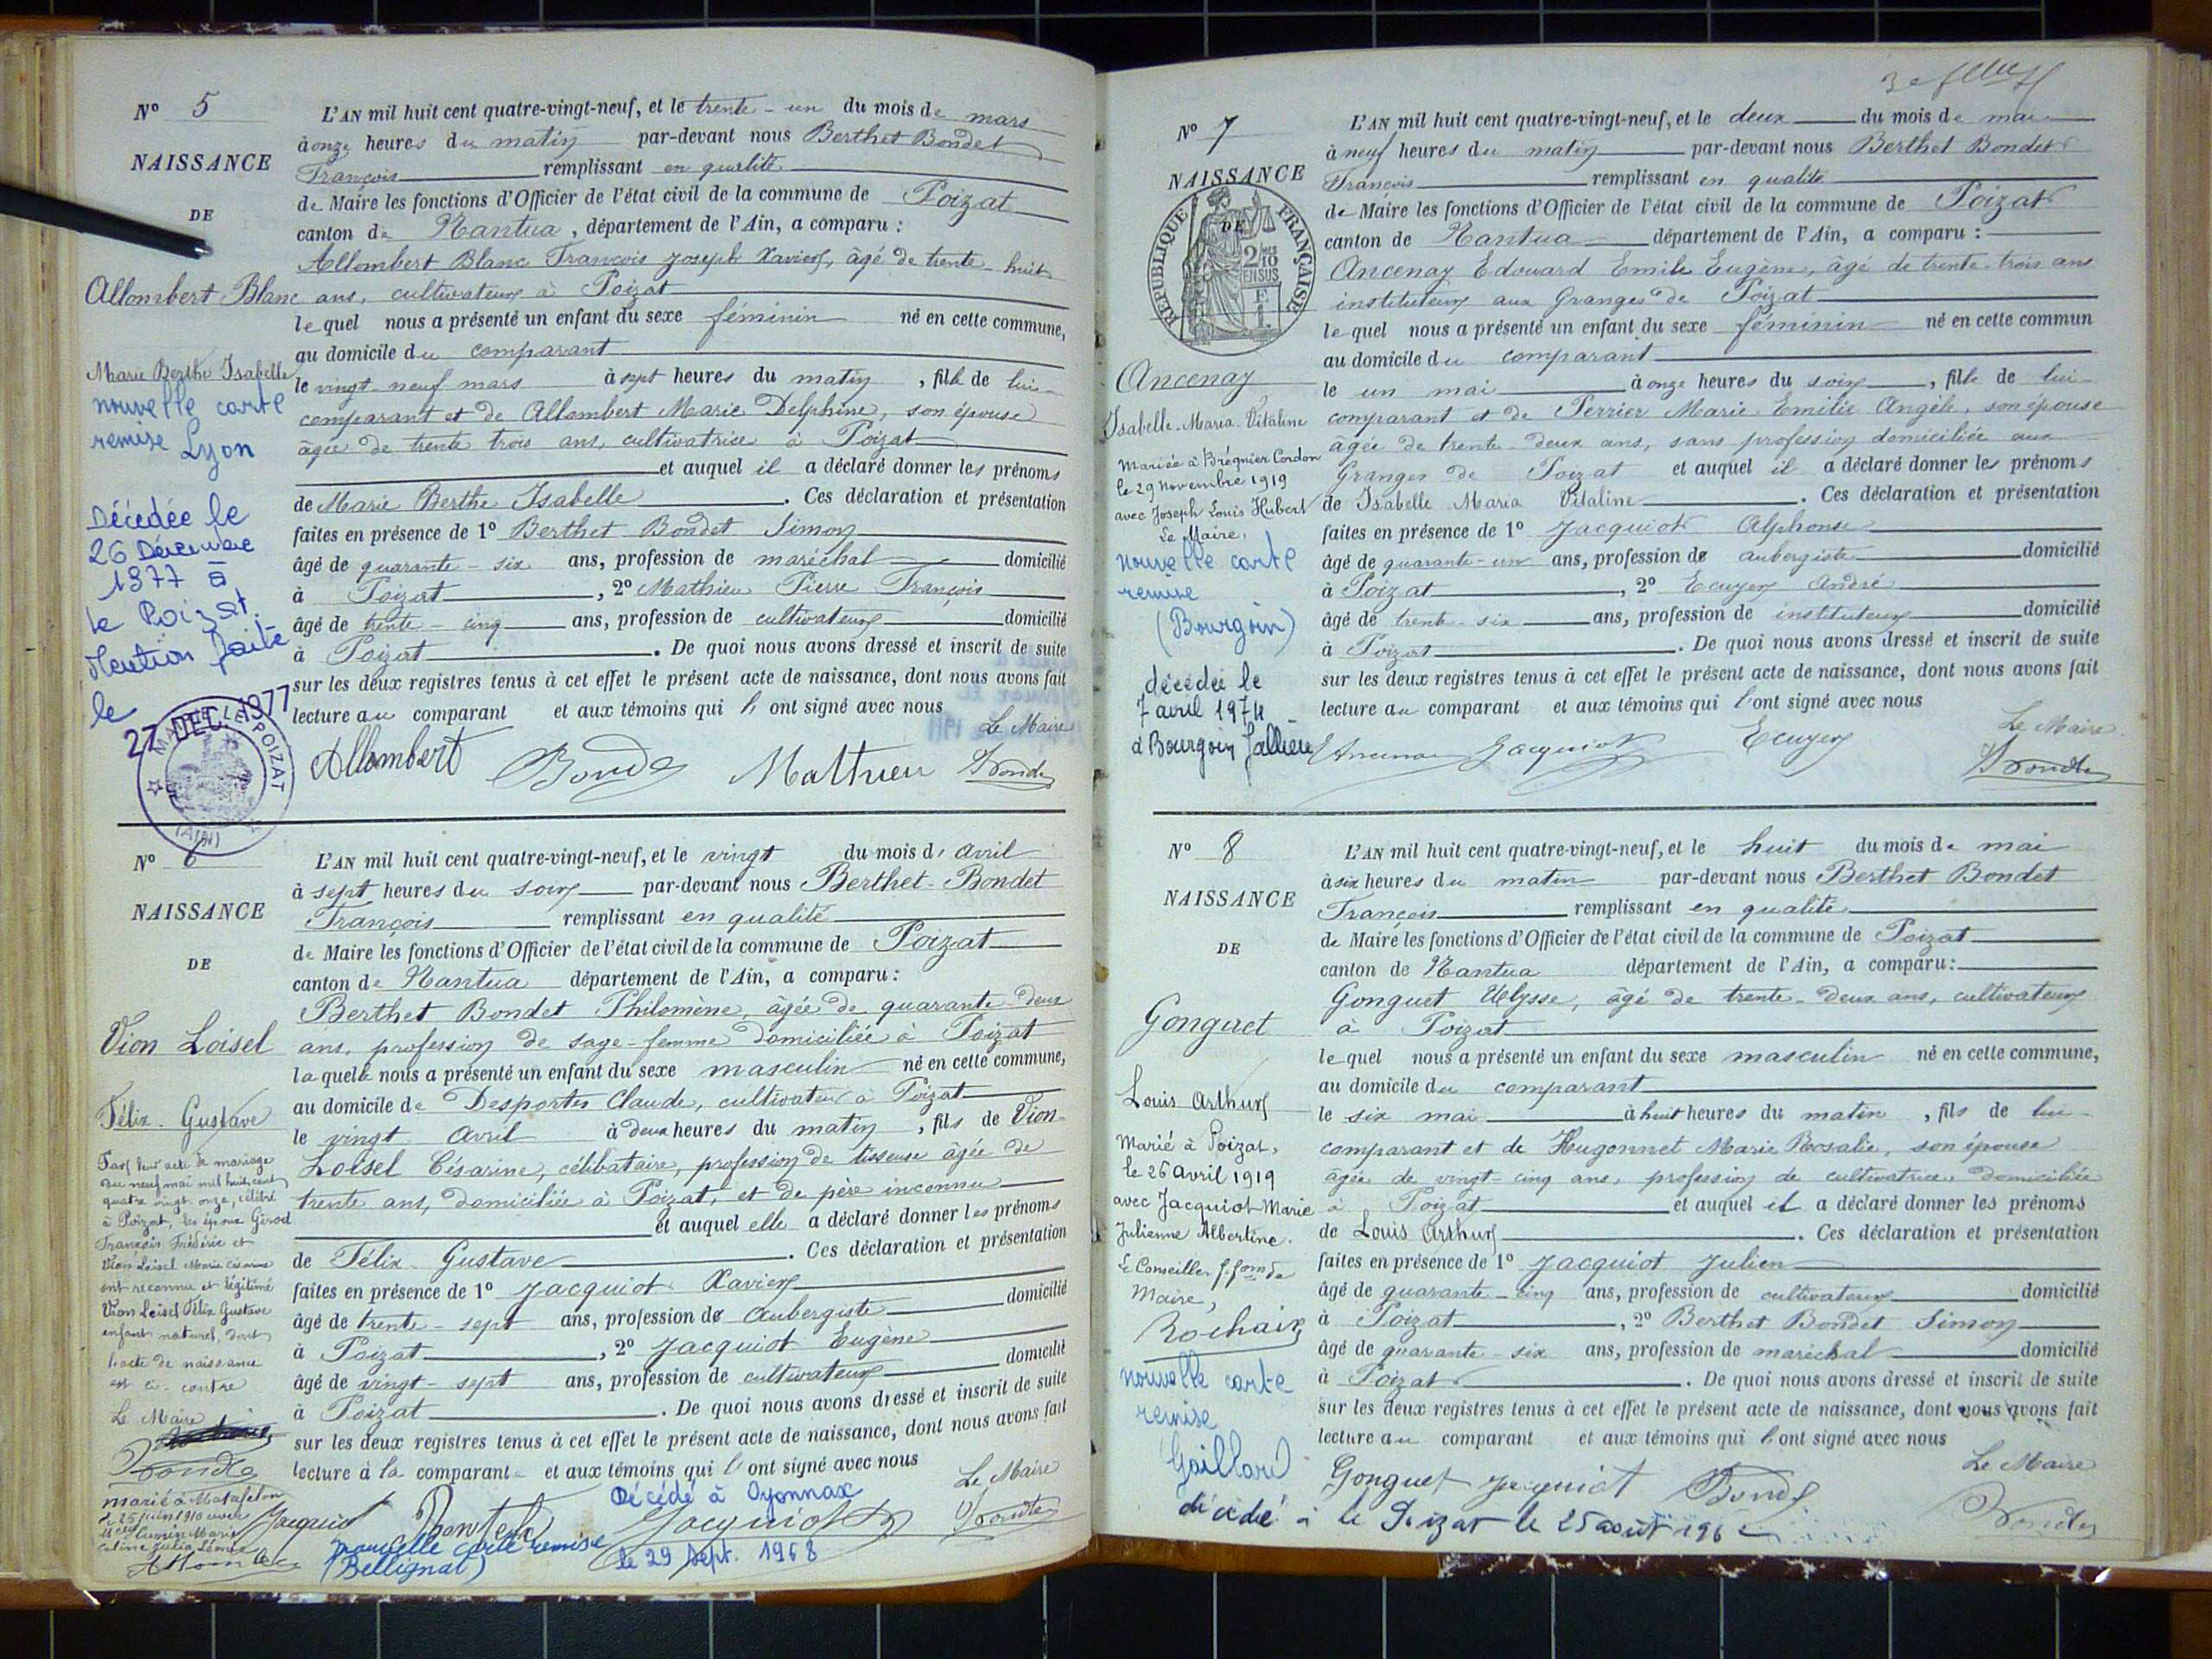 Nº 5
NAISSANCE
DE
Allombert Blanc
Marie Berthe Isabelle
nouvelle carte
remise Lyon
Décédée le
26 Décembre
1977 à
le Poizat.
Mention faite
le
27 DEC. 1977
MAIRIE LE POIZAT
(AIN)
L'AN mil huit cent quatre-vingt-neuf, et le trente-un du mois de mars
à onze heures du matin par-devant nous Berthet Bondet
François remplissant en qualité
de Maire les fonctions d'Officier de l'état civil de la commune de Poizat
canton de Nantua, département de l'Ain, a comparu :
Allombert Blanc François Joseph Xavier, âgé de trente-huit
ans, cultivateur à Poizat
lequel nous a présenté un enfant du sexe féminin né en cette commune,
au domicile du comparant
le vingt-neuf mars à sept heures du matin, fille de lui-
comparant et de Allombert Marie Delphine, son épouse
âgée de trente trois ans, cultivatrice à Poizat
et auquel il a déclaré donner les prénoms
de Marie Berthe Isabelle. Ces déclaration et présentation
faites en présence de 1º Berthet Bondet Simon
âgé de quarante-six ans, profession de maréchal domicilié
à Poizat, 2º Mathieu Pierre François
âgé de trente-cinq ans, profession de cultivateur domicilié
à Poizat. De quoi nous avons dressé et inscrit de suite
sur les deux registres tenus à cet effet le présent acte de naissance, dont nous avons fait
lecture au comparant et aux témoins qui l'ont signé avec nous
Le Maire
Allombert Bondet Mathieu Bondet
Nº 6
NAISSANCE
DE
Vion Loisel
Félix Gustave
Par leur acte de mariage
du neuf mai mil huit cent
quatre vingt onze, célébré
à Poizat, les époux Girod
François Frédéric et
Vion Loisel Marie Césarine
ont reconnu et légitimé
Vion Loisel Félix Gustave
enfant naturel, dont
l'acte de naissance
est ci-contre
Le Maire
Bondet
marié à Matafelon
le 25 juin 1910 avec
L'AN mil huit cent quatre-vingt-neuf, et le vingt du mois d' avril
à sept heures du soir par-devant nous Berthet-Bondet
François remplissant en qualité
de Maire les fonctions d'Officier de l'état civil de la commune de Poizat
canton de Nantua département de l'Ain, a comparu :
Berthet Bondet Philomène, âgée de quarante deux
ans, profession de sage-femme domiciliée à Poizat
laquelle nous a présenté un enfant du sexe masculin né en cette commune,
au domicile de Desportes Claude, cultivateur à Poizat
le vingt avril à deux heures du matin, fils de Vion-
Loisel Césarine, célibataire, profession de tisseuse âgée de
trente ans, domiciliée à Poizat, et de père inconnu
et auquel elle a déclaré donner les prénoms
de Félix Gustave. Ces déclaration et présentation
faites en présence de 1º Jacquiot Xavier
âgé de trente-sept ans, profession de aubergiste domicilié
à Poizat, 2º Jacquiot Eugène
âgé de vingt-sept ans, profession de cultivateur domicilié
à Poizat. De quoi nous avons dressé et inscrit de suite
sur les deux registres tenus à cet effet le présent acte de naissance, dont nous avons fait
lecture à la comparante et aux témoins qui l'ont signé avec nous
Le Maire
Décédé à Oyonnax
le 29 Sept. 1968
Jacquiot Jacquiot Bondet
nouvelle carte remise
(Bellignat)
Nº 7
NAISSANCE
DE
REPUBLIQUE FRANÇAISE
2/10
EN SUS
Ancenay
Isabelle-Maria-Vitaline
Mariée à Brégnier Cordon
le 29 novembre 1919
avec Joseph Louis Hubert
Le Maire,
nouvelle carte
remise
(Bourgoin)
décédée le
7 avril 1974
à Bourgoin Jallieu
L'AN mil huit cent quatre-vingt-neuf, et le deux du mois de mai
à neuf heures du matin par-devant nous Berthet Bondet
François remplissant en qualité
de Maire les fonctions d'Officier de l'état civil de la commune de Poizat
canton de Nantua département de l'Ain, a comparu :
Ancenay Edouard Emile Eugène, âgé de trente-trois ans
instituteur aux Granges de Poizat
lequel nous a présenté un enfant du sexe féminin né en cette commun
au domicile du comparant
le un mai à onze heures du soir, fille de lui-
comparant et de Perrier Marie Emilie Angèle, son épouse
âgée de trente deux ans, sans profession domiciliée aux
Granges de Poizat et auquel il a déclaré donner les prénoms
de Isabelle Maria Vitaline. Ces déclaration et présentation
faites en présence de 1º Jacquiot Alphonse
âgé de quarante-un ans, profession de aubergiste domicilié
à Poizat, 2º Ecuyer André
âgé de trente-six ans, profession de instituteur domicilié
à Poizat. De quoi nous avons dressé et inscrit de suite
sur les deux registres tenus à cet effet le présent acte de naissance, dont nous avons fait
lecture au comparant et aux témoins qui l'ont signé avec nous
Le Maire
Ancenay Jacquiot Ecuyer Bondet
Nº 8
NAISSANCE
DE
Gonguet
Louis Arthur
Marié à Poizat,
le 26 avril 1919
avec Jacquiot Marie
Julienne Albertine.
Le Conseiller f. fons de
Maire,
Rochaix
nouvelle carte
remise
Gaillard
L'AN mil huit cent quatre-vingt-neuf, et le huit du mois de mai
à six heures du matin par-devant nous Berthet Bondet
François remplissant en qualité
de Maire les fonctions d'Officier de l'état civil de la commune de Poizat
canton de Nantua département de l'Ain, a comparu :
Gonguet Ulysse, âgé de trente-deux ans, cultivateur
à Poizat
lequel nous a présenté un enfant du sexe masculin né en cette commune,
au domicile du comparant
le six mai à huit heures du matin, fils de lui-
comparant et de Hugonnet Marie Rosalie, son épouse
âgée de vingt-cinq ans, profession de cultivatrice, domiciliée
à Poizat et auquel il a déclaré donner les prénoms
de Louis Arthur. Ces déclaration et présentation
faites en présence de 1º Jacquiot Julien
âgé de quarante-cinq ans, profession de cultivateur domicilié
à Poizat, 2º Berthet Bondet Simon
âgé de quarante-six ans, profession de maréchal domicilié
à Poizat. De quoi nous avons dressé et inscrit de suite
sur les deux registres tenus à cet effet le présent acte de naissance, dont nous avons fait
lecture au comparant et aux témoins qui l'ont signé avec nous
Le Maire
Gonguet Jacquiot Bondet Bondet
décédé à le Poizat le 25 août 196